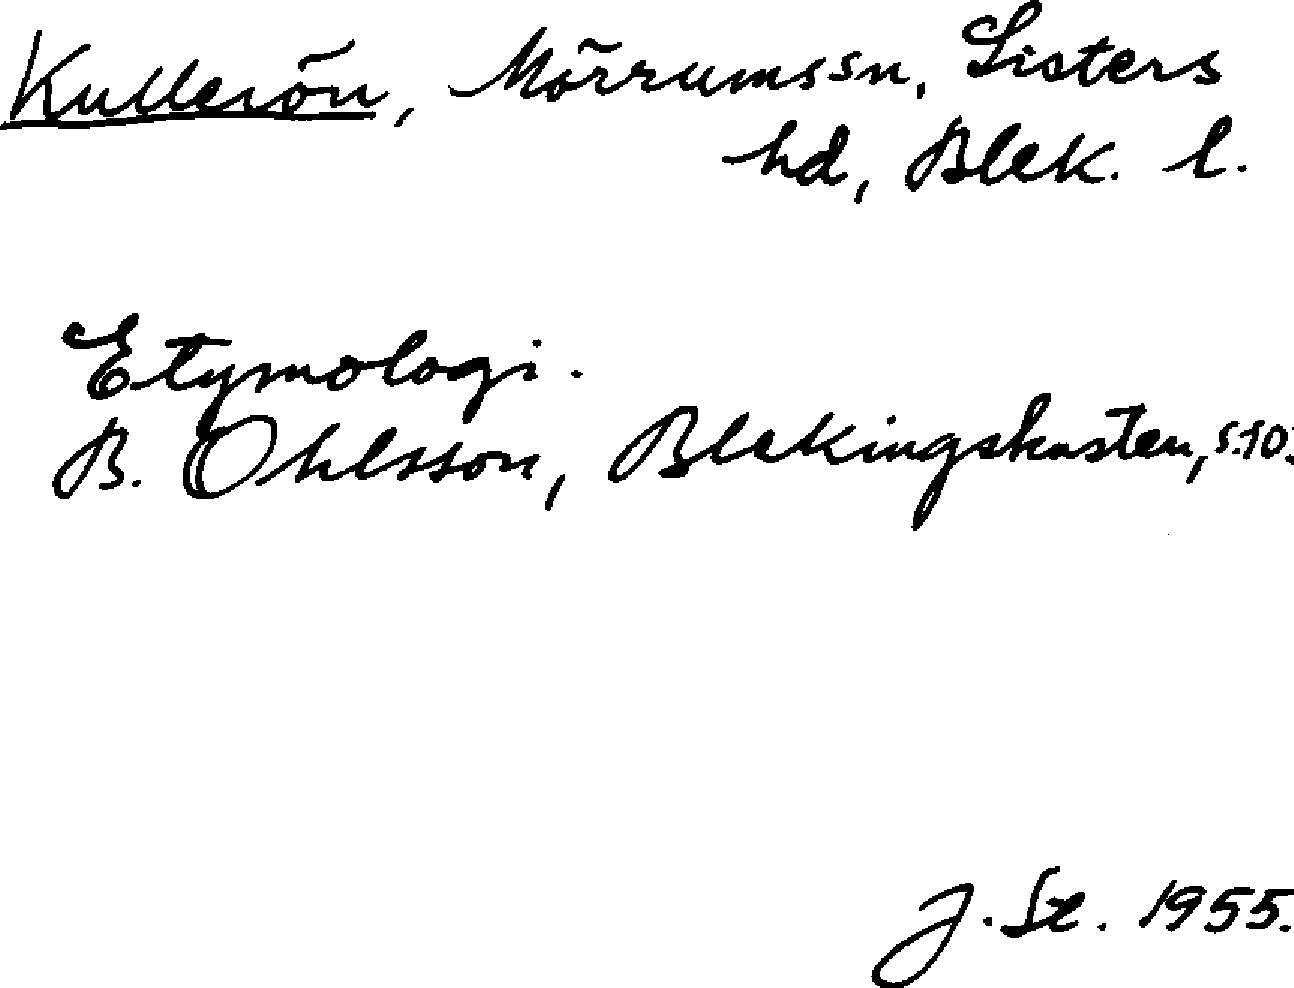 Kullerön, Mörrumssn, Listers
hd, Blek. l.
Etymologi.
B. Ohlsson, Blekingskusten, s. 10.
J. Sx. 1955.